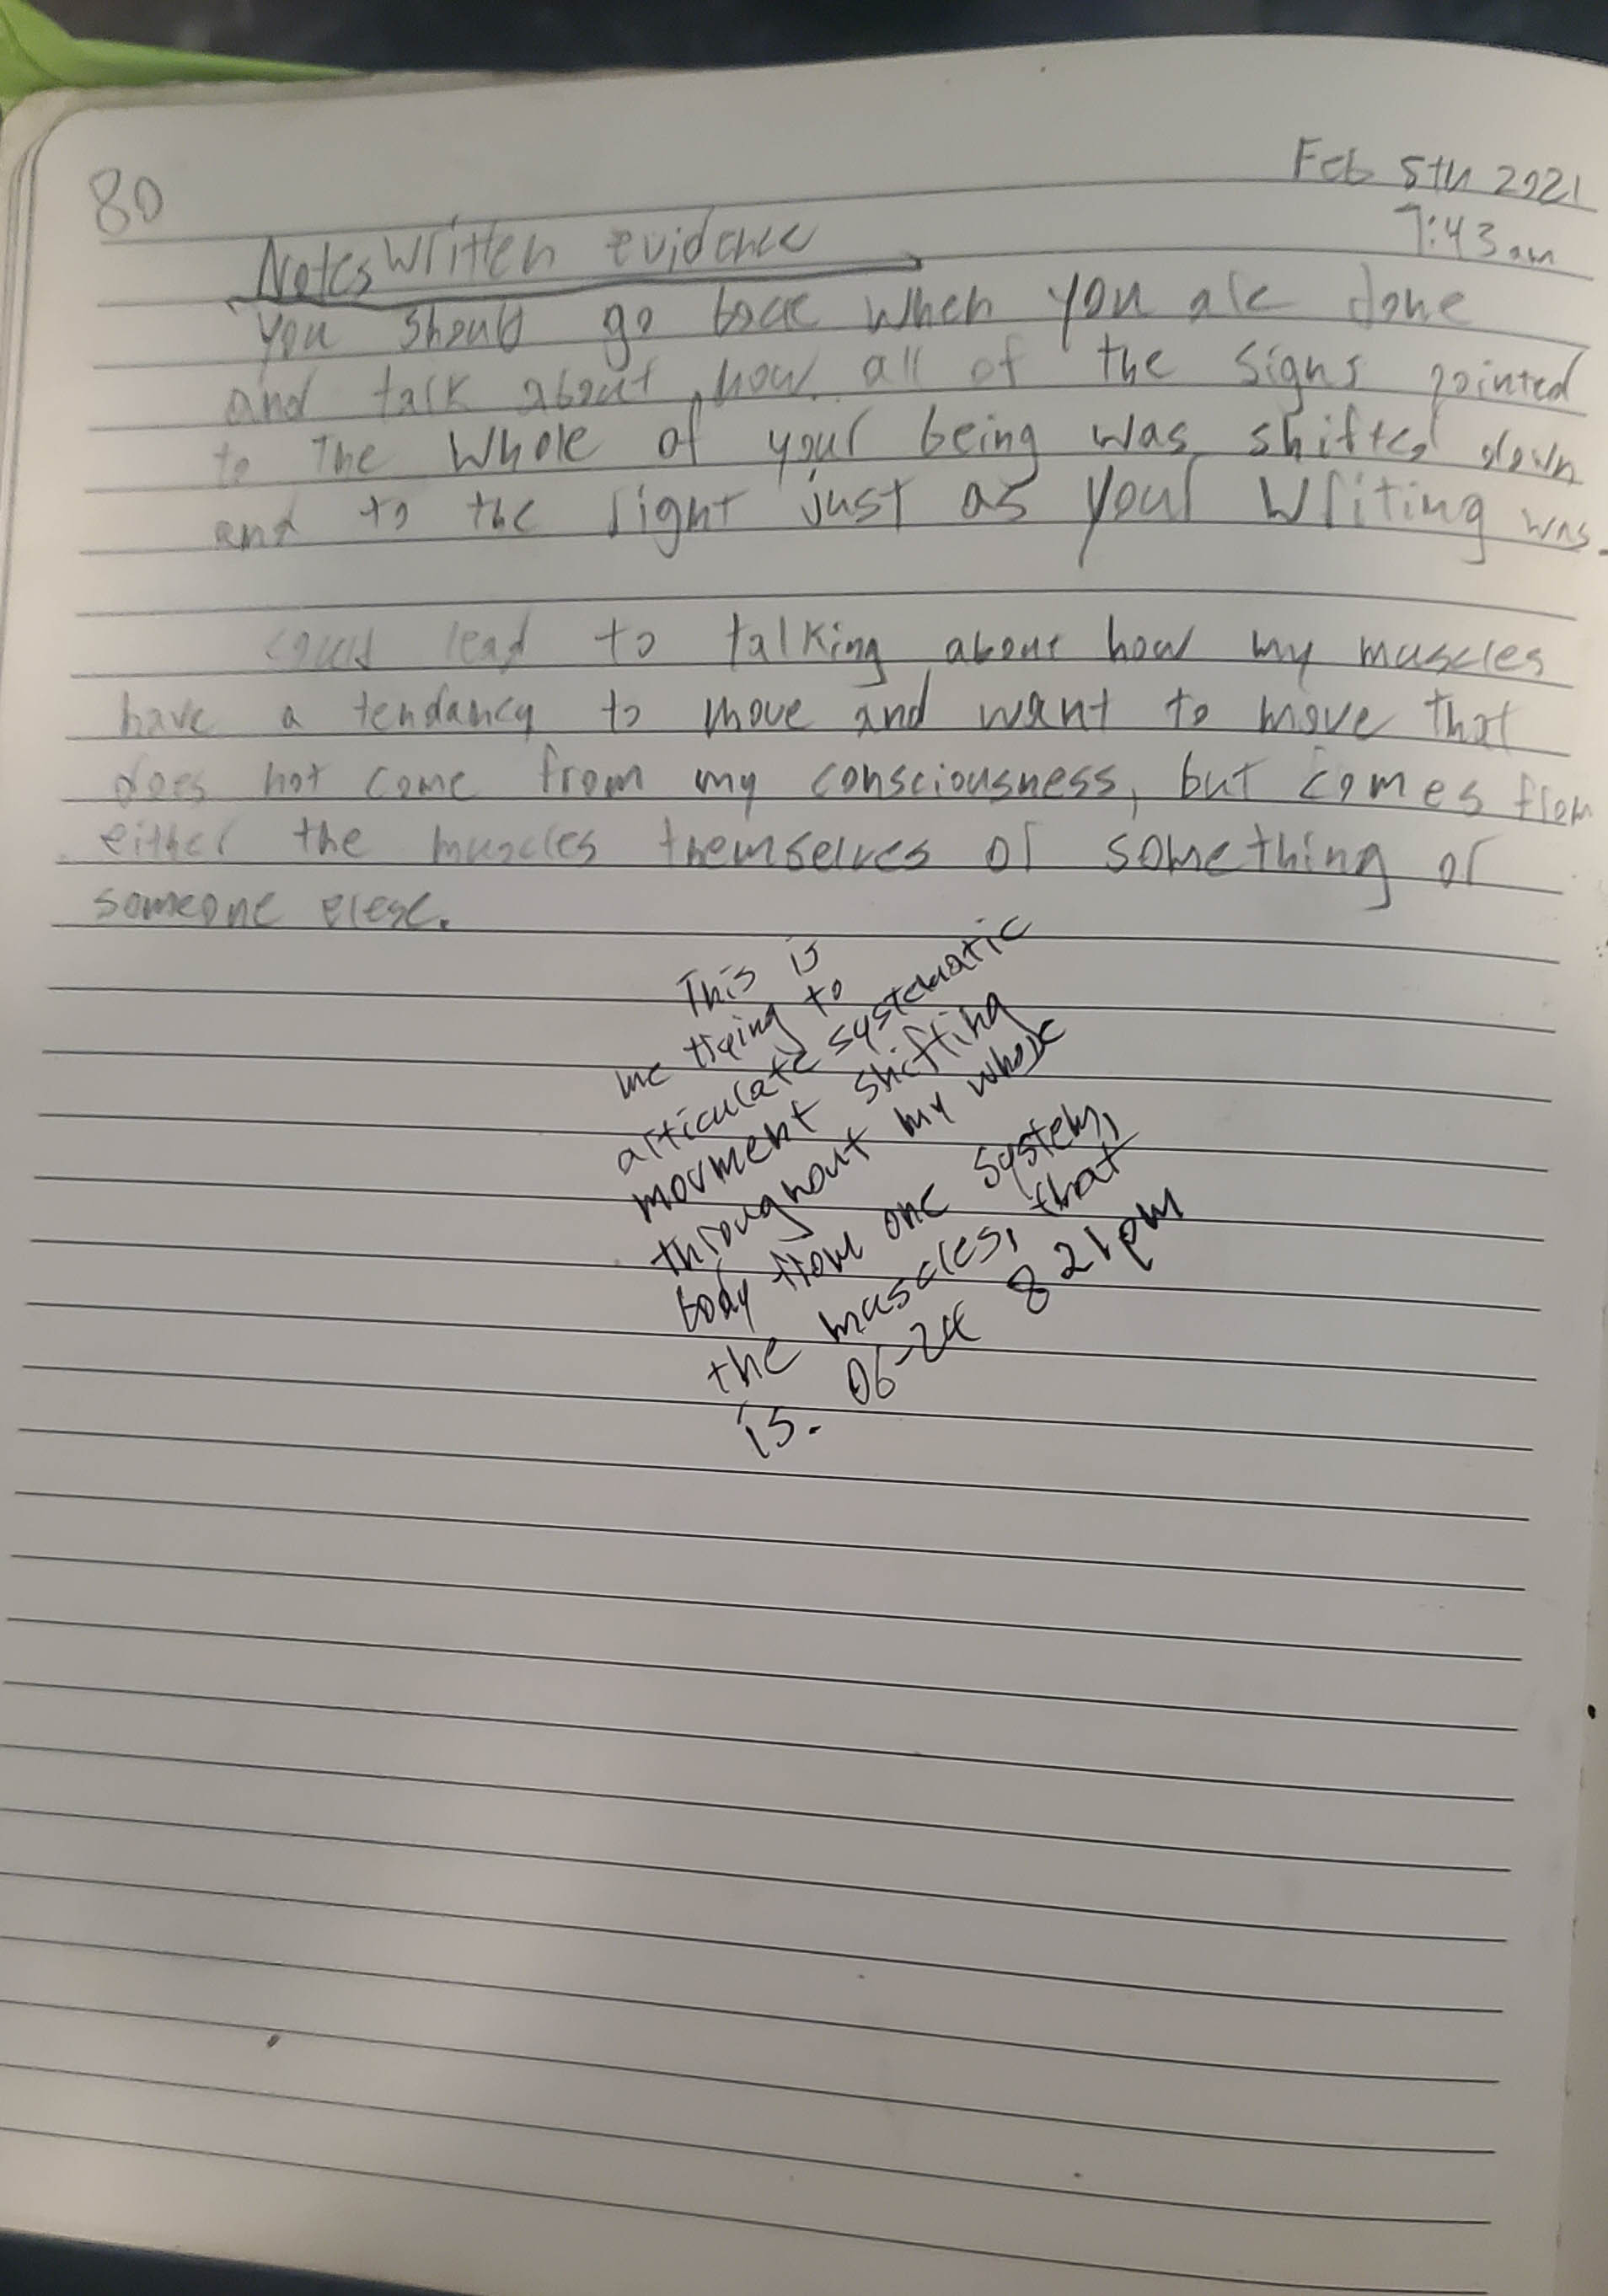 80
Feb 5th 2021
7:43am
Notes Written evidence
you should go back when you are done
and talk about how all of the signs pointed
to The Whole of your being was shifted down
and to the right just as your Writing was.
could lead to talking about how my muscles
have a tendancy to move and want to move that
does not come from my consciousness, but comes from
either the muscles themselves or something or
someone elese.
This is
me trying to
articulate systematic
movment shifting
throughout my whole
body from one system,
the muscles, that
is. 06-24 8 21pm